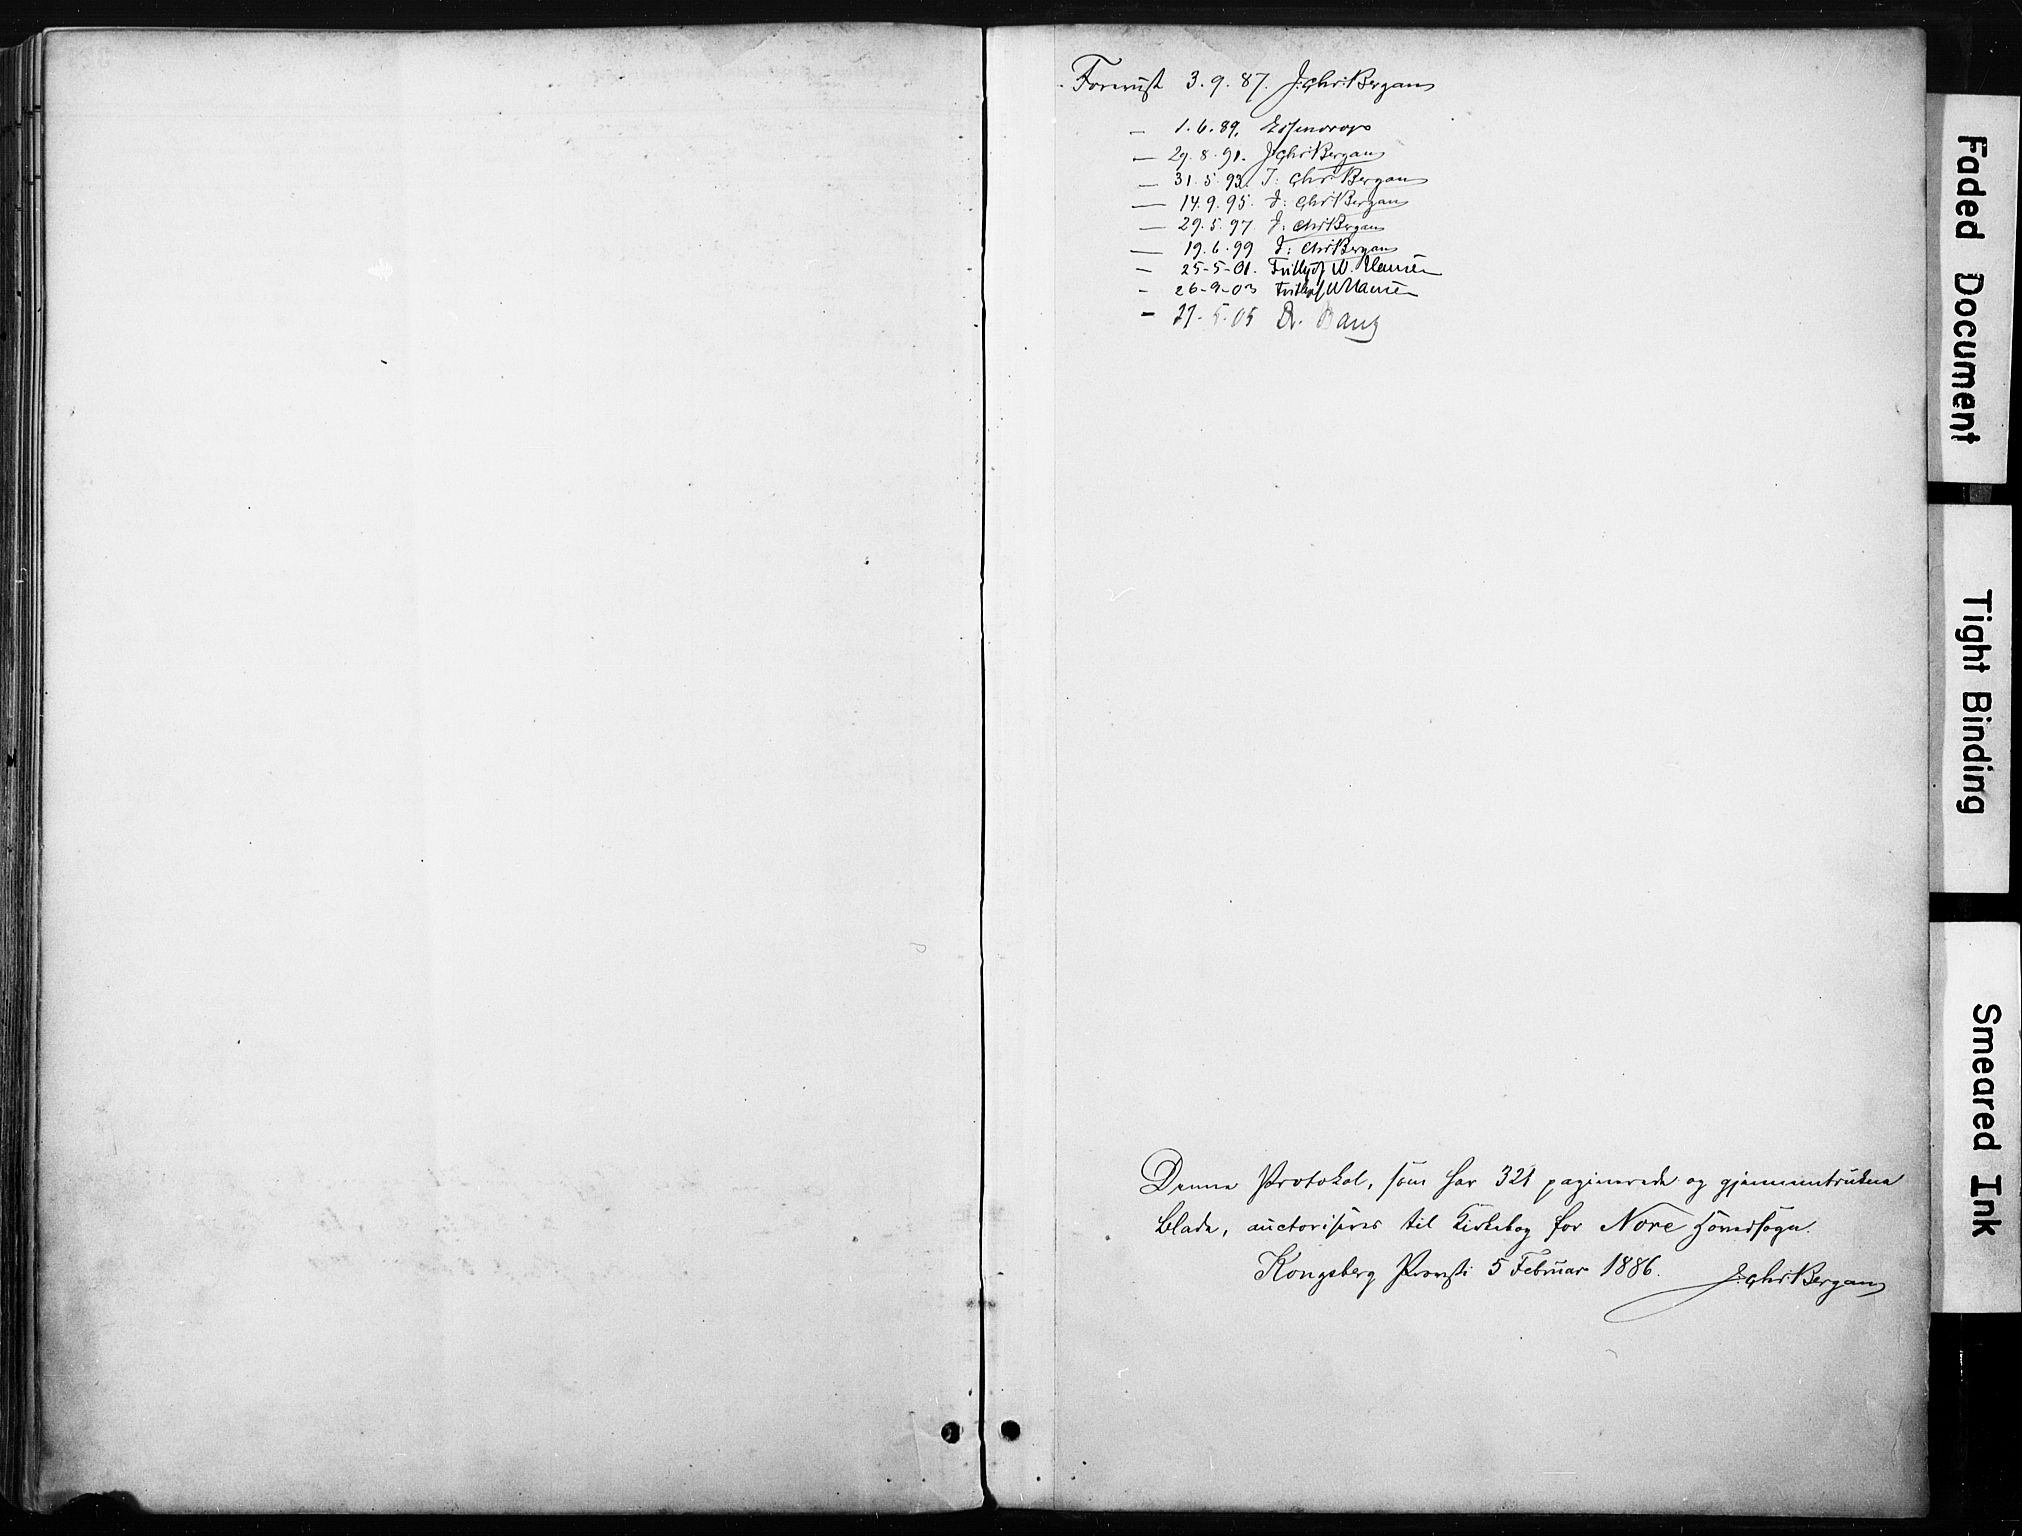 Forevist 3.9.87. J. Chr. Bergan
— 1.6.89. Essendrop
— 29.8.91. J. Chr. Bergan
— 31.5.93. J: Chr. Bergan
— 14.9.95. J: Chr Bergan
— 29.5.97 J: Chr Bergan
— 19.6.99 J: Chr Bergan
— 25-5-01. Frithjof W. Hansen
- 26-9-03 Frithjof W Hansen
- 27-5-05 A. Bang
Denne Protokol, som har 321 paginerede og gjennemtrukne
Blade, auctoriseres til Kirkebog for Nore Hovedsogn.
Kongsberg Provsti 5 Februar 1886. J. Chr. Bergan
Faded Document
Tight Binding
Smeared Ink